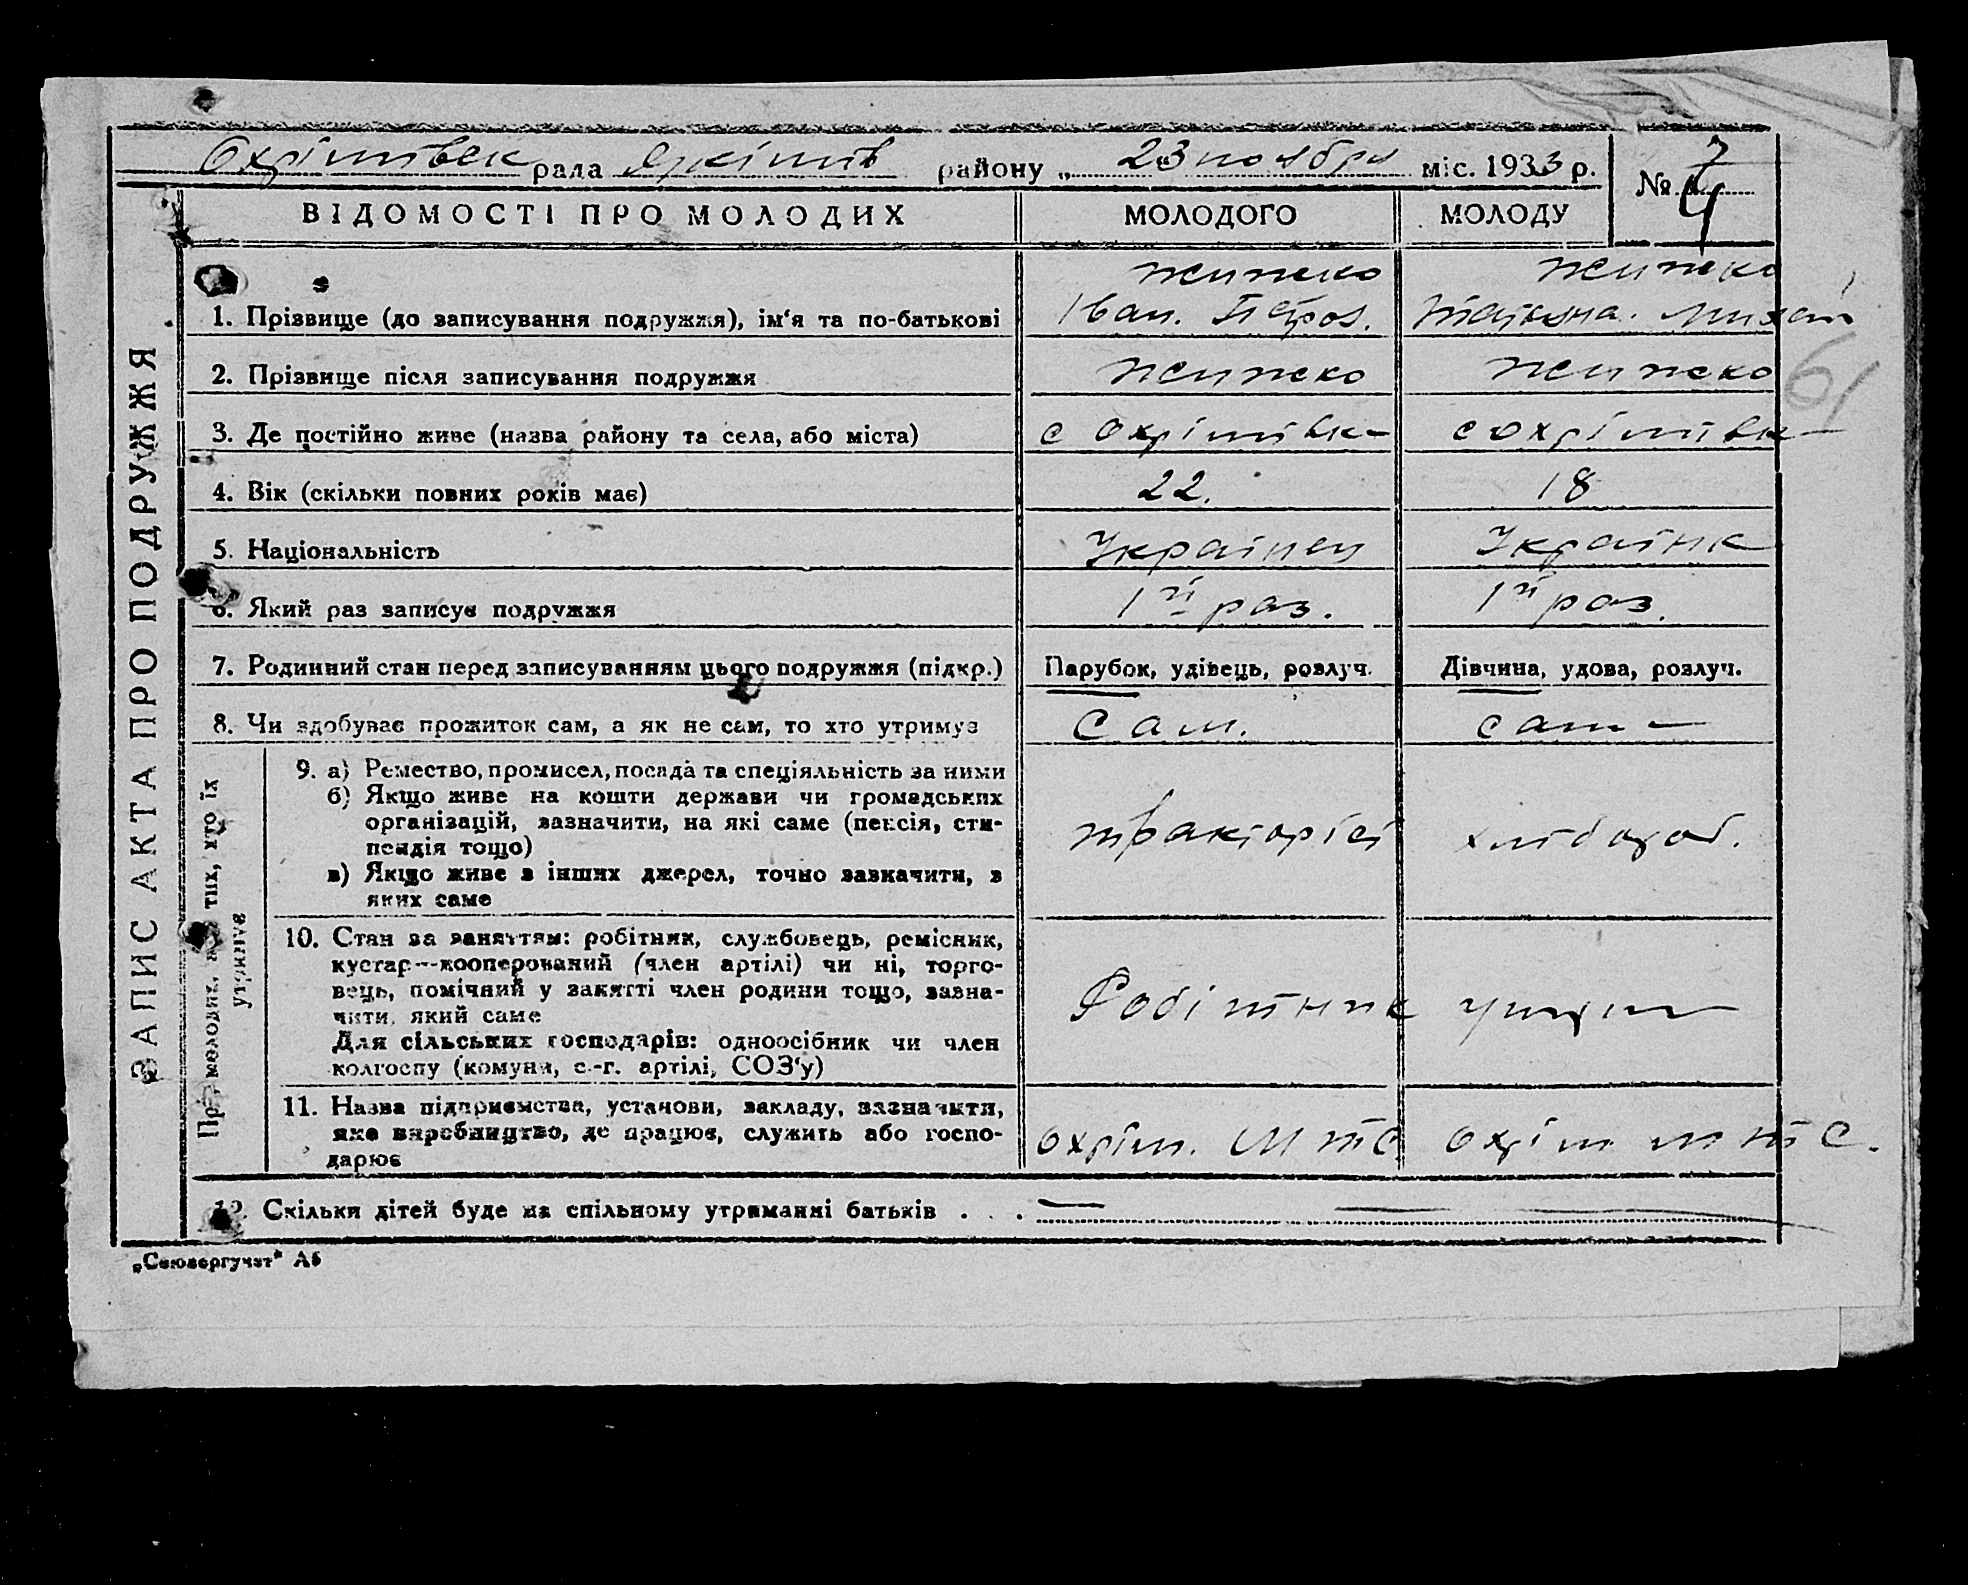 Охрімівск рада Якимів району „ 23 ноября міс. 1933 р.
№ 7
4
ЗАПИС АКТА ПРО ПОДРУЖЖЯ
ВІДОМОСТІ ПРО МОЛОДИХ МОЛОДОГО МОЛОДУ
Жижко Жижко
1. Прізвище (до записування подружжя), ім'я та по-батькові Іван. Петров. Татьяна. Михай
2. Прізвище після записування подружжя Жижко Жижко
61
3. Де постійно живе (назва району та села, або міста) с Охрімівк с Охрімівк
4. Вік (скільки повних років має) 22. 18
5. Національність Українец Українк
6. Який раз записує подружжя 1й раз. 1й раз.
7. Родинний стан перед записуванням цього подружжя (підкр.) Парубок, удівець, розлуч. Дівчина, удова, розлуч.
8. Чи здобуває прожиток сам, а як не сам, то хто утримує Сам. сам
Про молодих, або тих, хто їх
утримує
9. а) Ремество, промисел, посада та спеціяльність за ними
б) Якщо живе на кошти держави чи громадських
організацій, зазначити, на які саме (пенсія, сти-
пендія тощо) тракторіст хлібороб.
в) Якщо живе з інших джерел, точно зазначити, з
яких саме
10. Стан за заняттям: робітник, службовець, ремісник,
кустар—кооперований (член артілі) чи ні, торго-
вець, помічний у занятті член родини тощо, зазна-
чити, який саме Робітник
Для сільських господарів: одноосібник чи член
колгоспу (комуни, с.-г. артілі, СОЗ'у)
11. Назва підприємства, установи, закладу, зазначити,
яке виробництво, де працює, служить або госпо- Охрім. МТС Охрім МТС.
дарює
12. Скільки дітей буде на спільному утриманні батьків . . . —